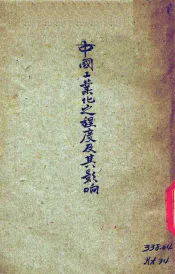 中國工業化之程度及其影响
338.44